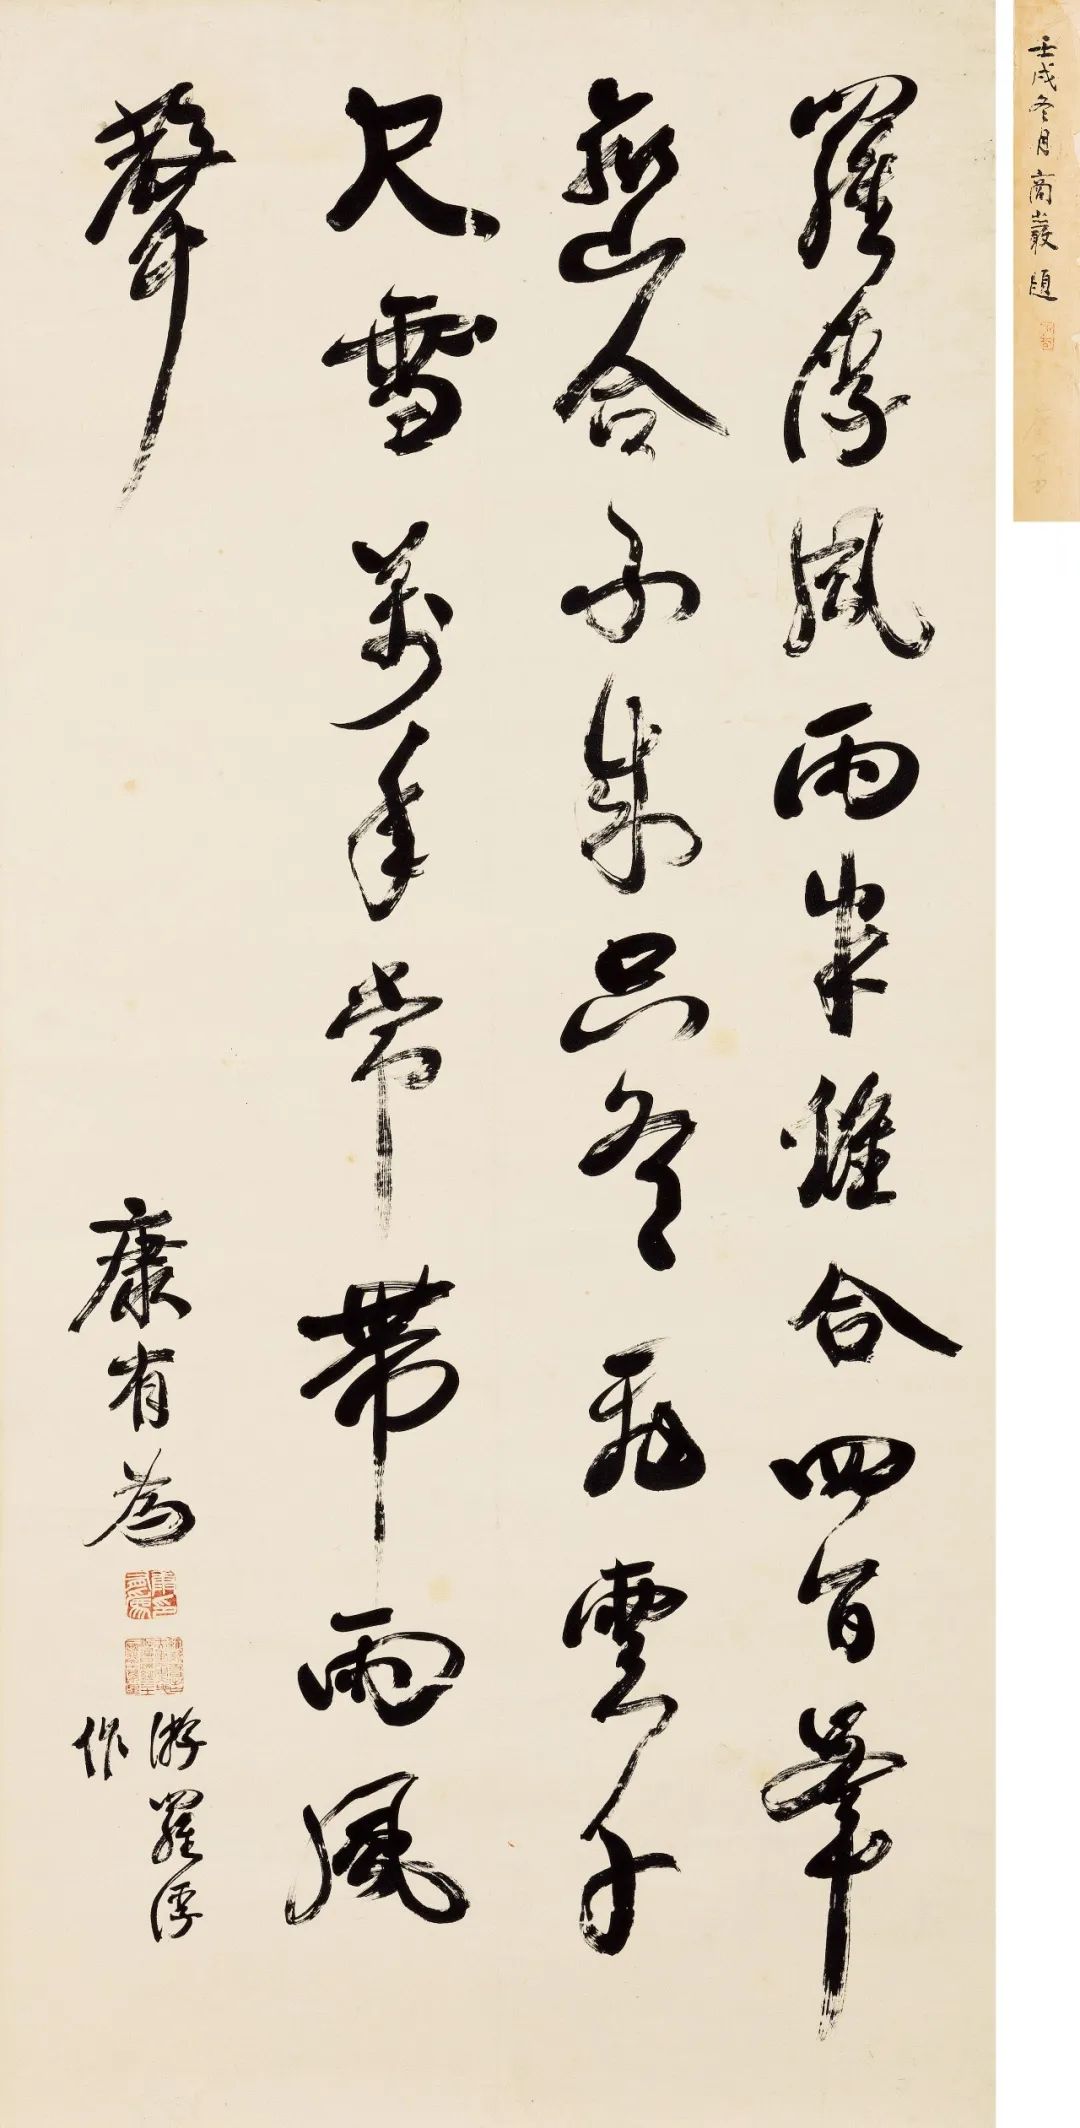 壬戌冬月商巖題
羅浮風雨離合四百峯
巒合不成只飛雲千
尺雪萬年常帶雨風
聲
康有為
康有為印
游羅浮
作